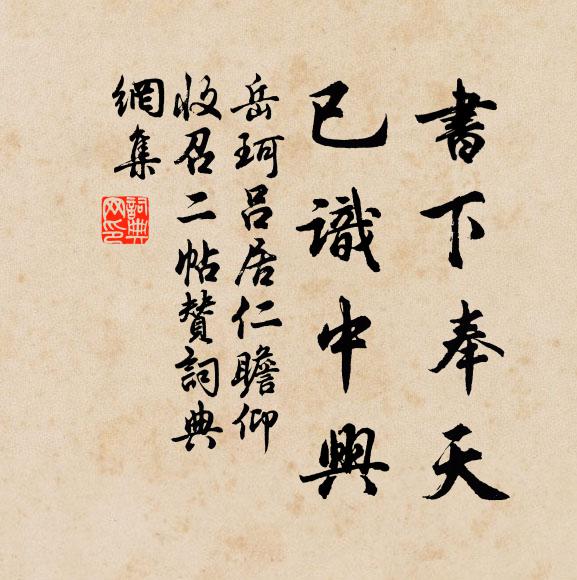 書下奉天
已識中興
岳珂呂居仁瞻仰
收召二帖贊詞典
網集
詞典网印